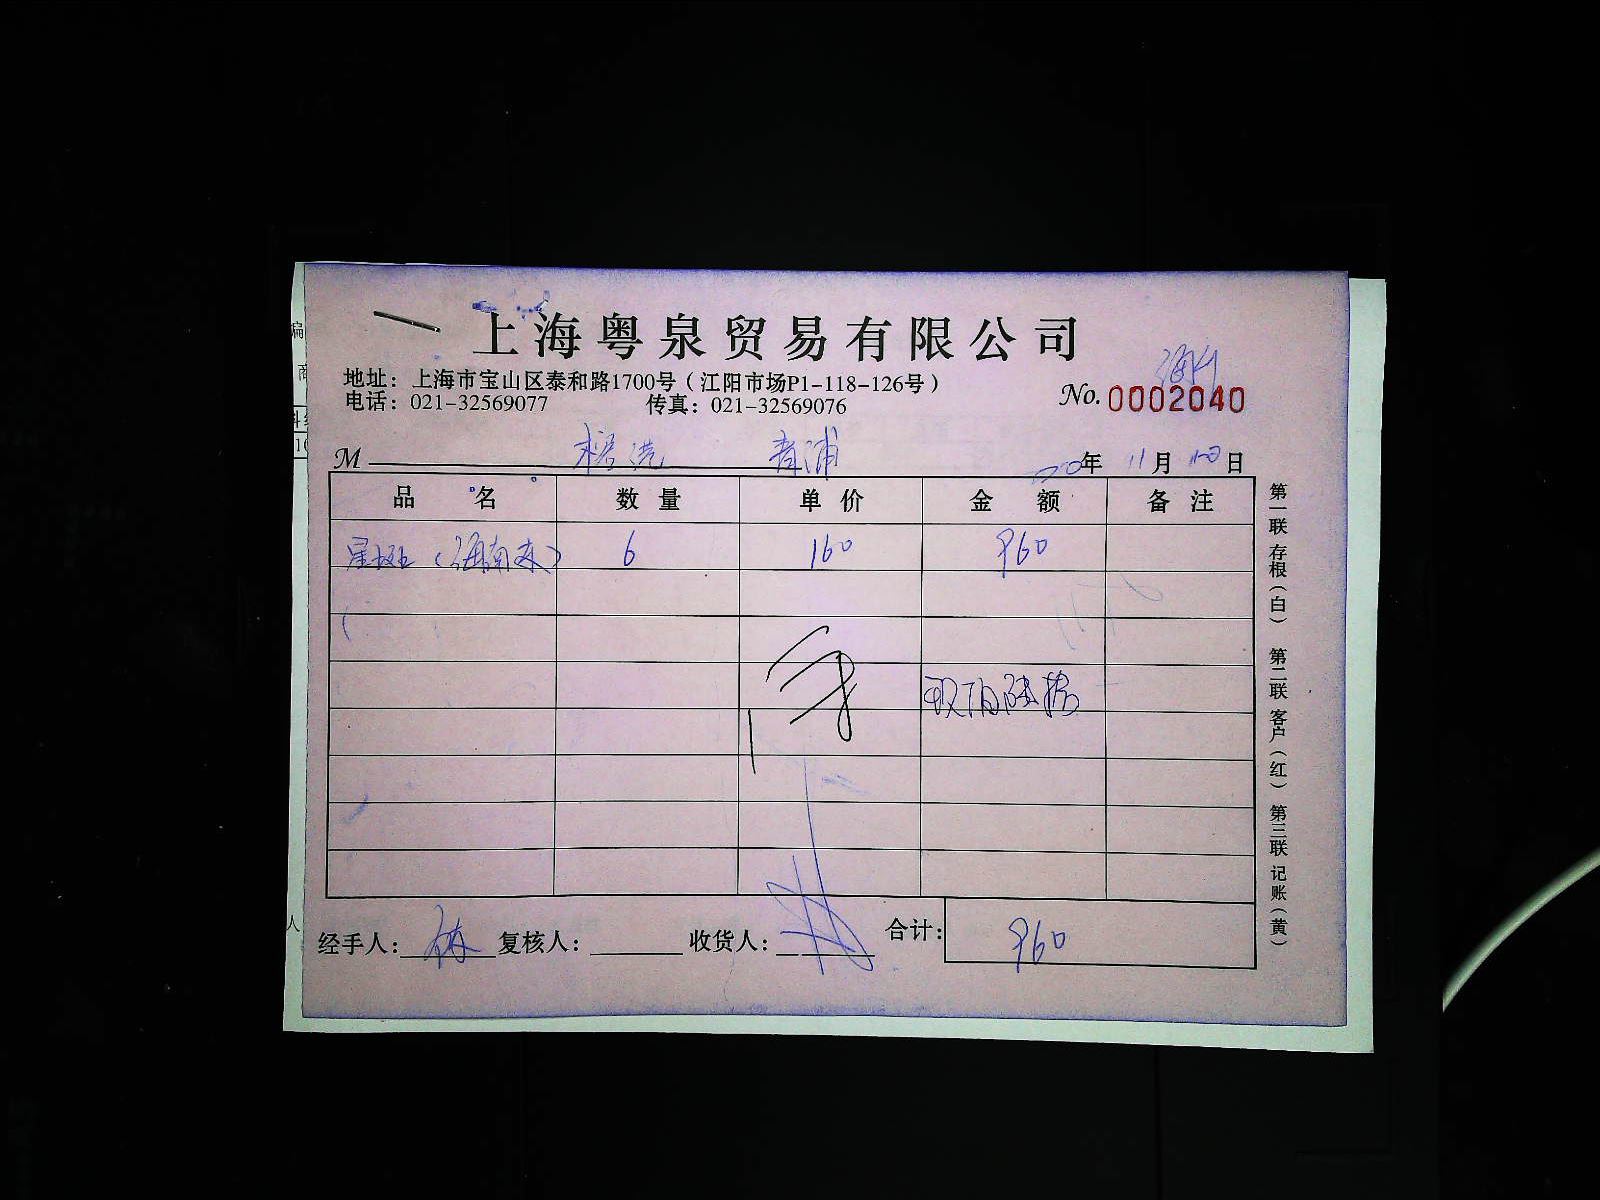 上海粤泉贸易有限公司
地址：上海市宝山区泰和路1700号（江阳市场P1-118-126号）
电话：021-32569077 传真：021-32569076
No. 0002040
M 青浦 年 11月 日
品名 数量 单价 金额 备注
星斑（海南来） 6 160 960
玖佰陆拾
经手人： 复核人： 收货人： 合计： 960
第一联 存根（白） 第二联 客户（红） 第三联 记账（黄）